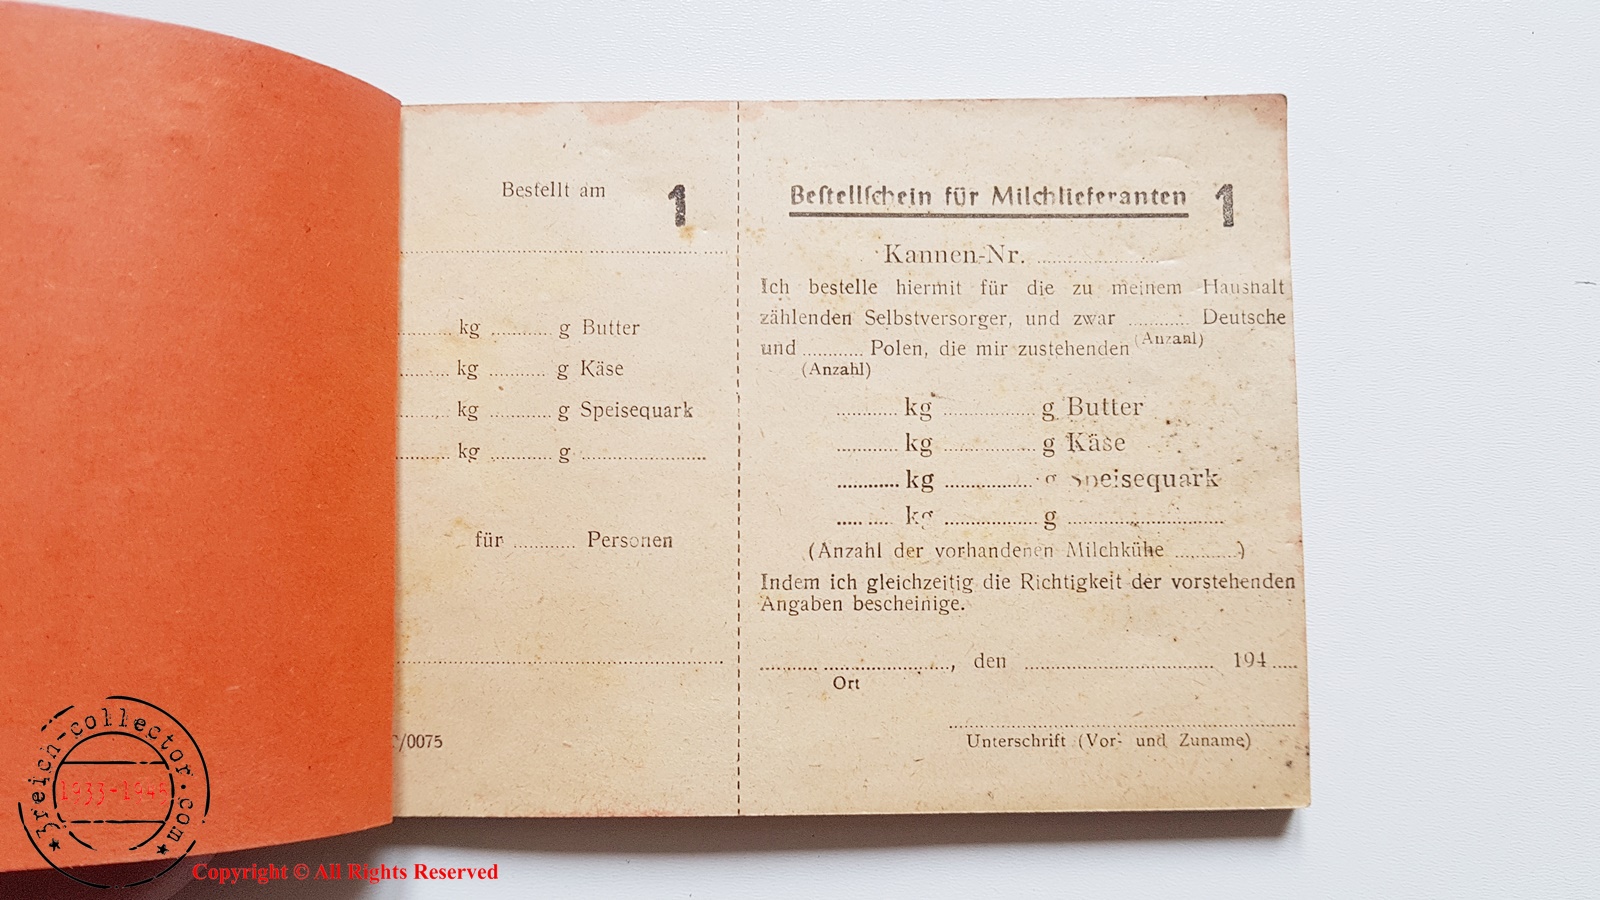 Bestellt am 1
kg g Butter
kg g Käse
kg g Speisequark
kg g
für Personen
/0075
Bestellschein für Milchlieferanten 1
Kannen-Nr.
Ich bestelle hiermit für die zu meinem Haushalt
zählenden Selbstversorger, und zwar Deutsche
(Anzahl)
und Polen, die mir zustehenden
(Anzahl)
kg g Butter
kg g Käse
kg g Speisequark
kg g
(Anzahl der vorhandenen Milchkühe )
Indem ich gleichzeitig die Richtigkeit der vorstehenden
Angaben bescheinige.
, den 194
Ort
Unterschrift (Vor- und Zuname)
3reich-collector.com
1933-1945
Copyright © All Rights Reserved